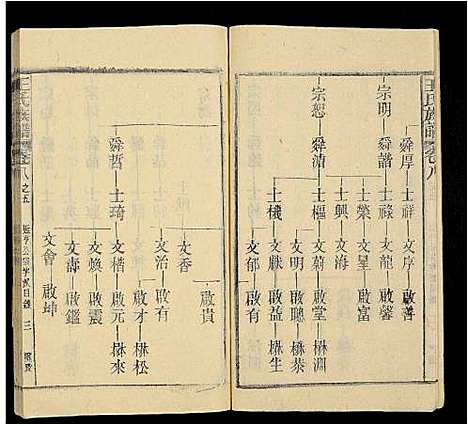 王氏族譜 卷八
舜厚 士祥 文序 啟善
宗明 舜諧 士祿 文龍 啟馨
士榮 文星 啟富
士興 文海
宗恕 舜清 士樞 文蔚 啟堂 楙淵
文明 啟聰 楙泰
士機 文獻 啟益 楙生
文郁 啟有
士 文香 啟貴
文治 啟有
啟才 楙松
舜哲 士琦 文楷 啟元 楙來
文煥 啟震
文壽 啟鑑
文會 啟坤
王氏族譜 卷八之五 三